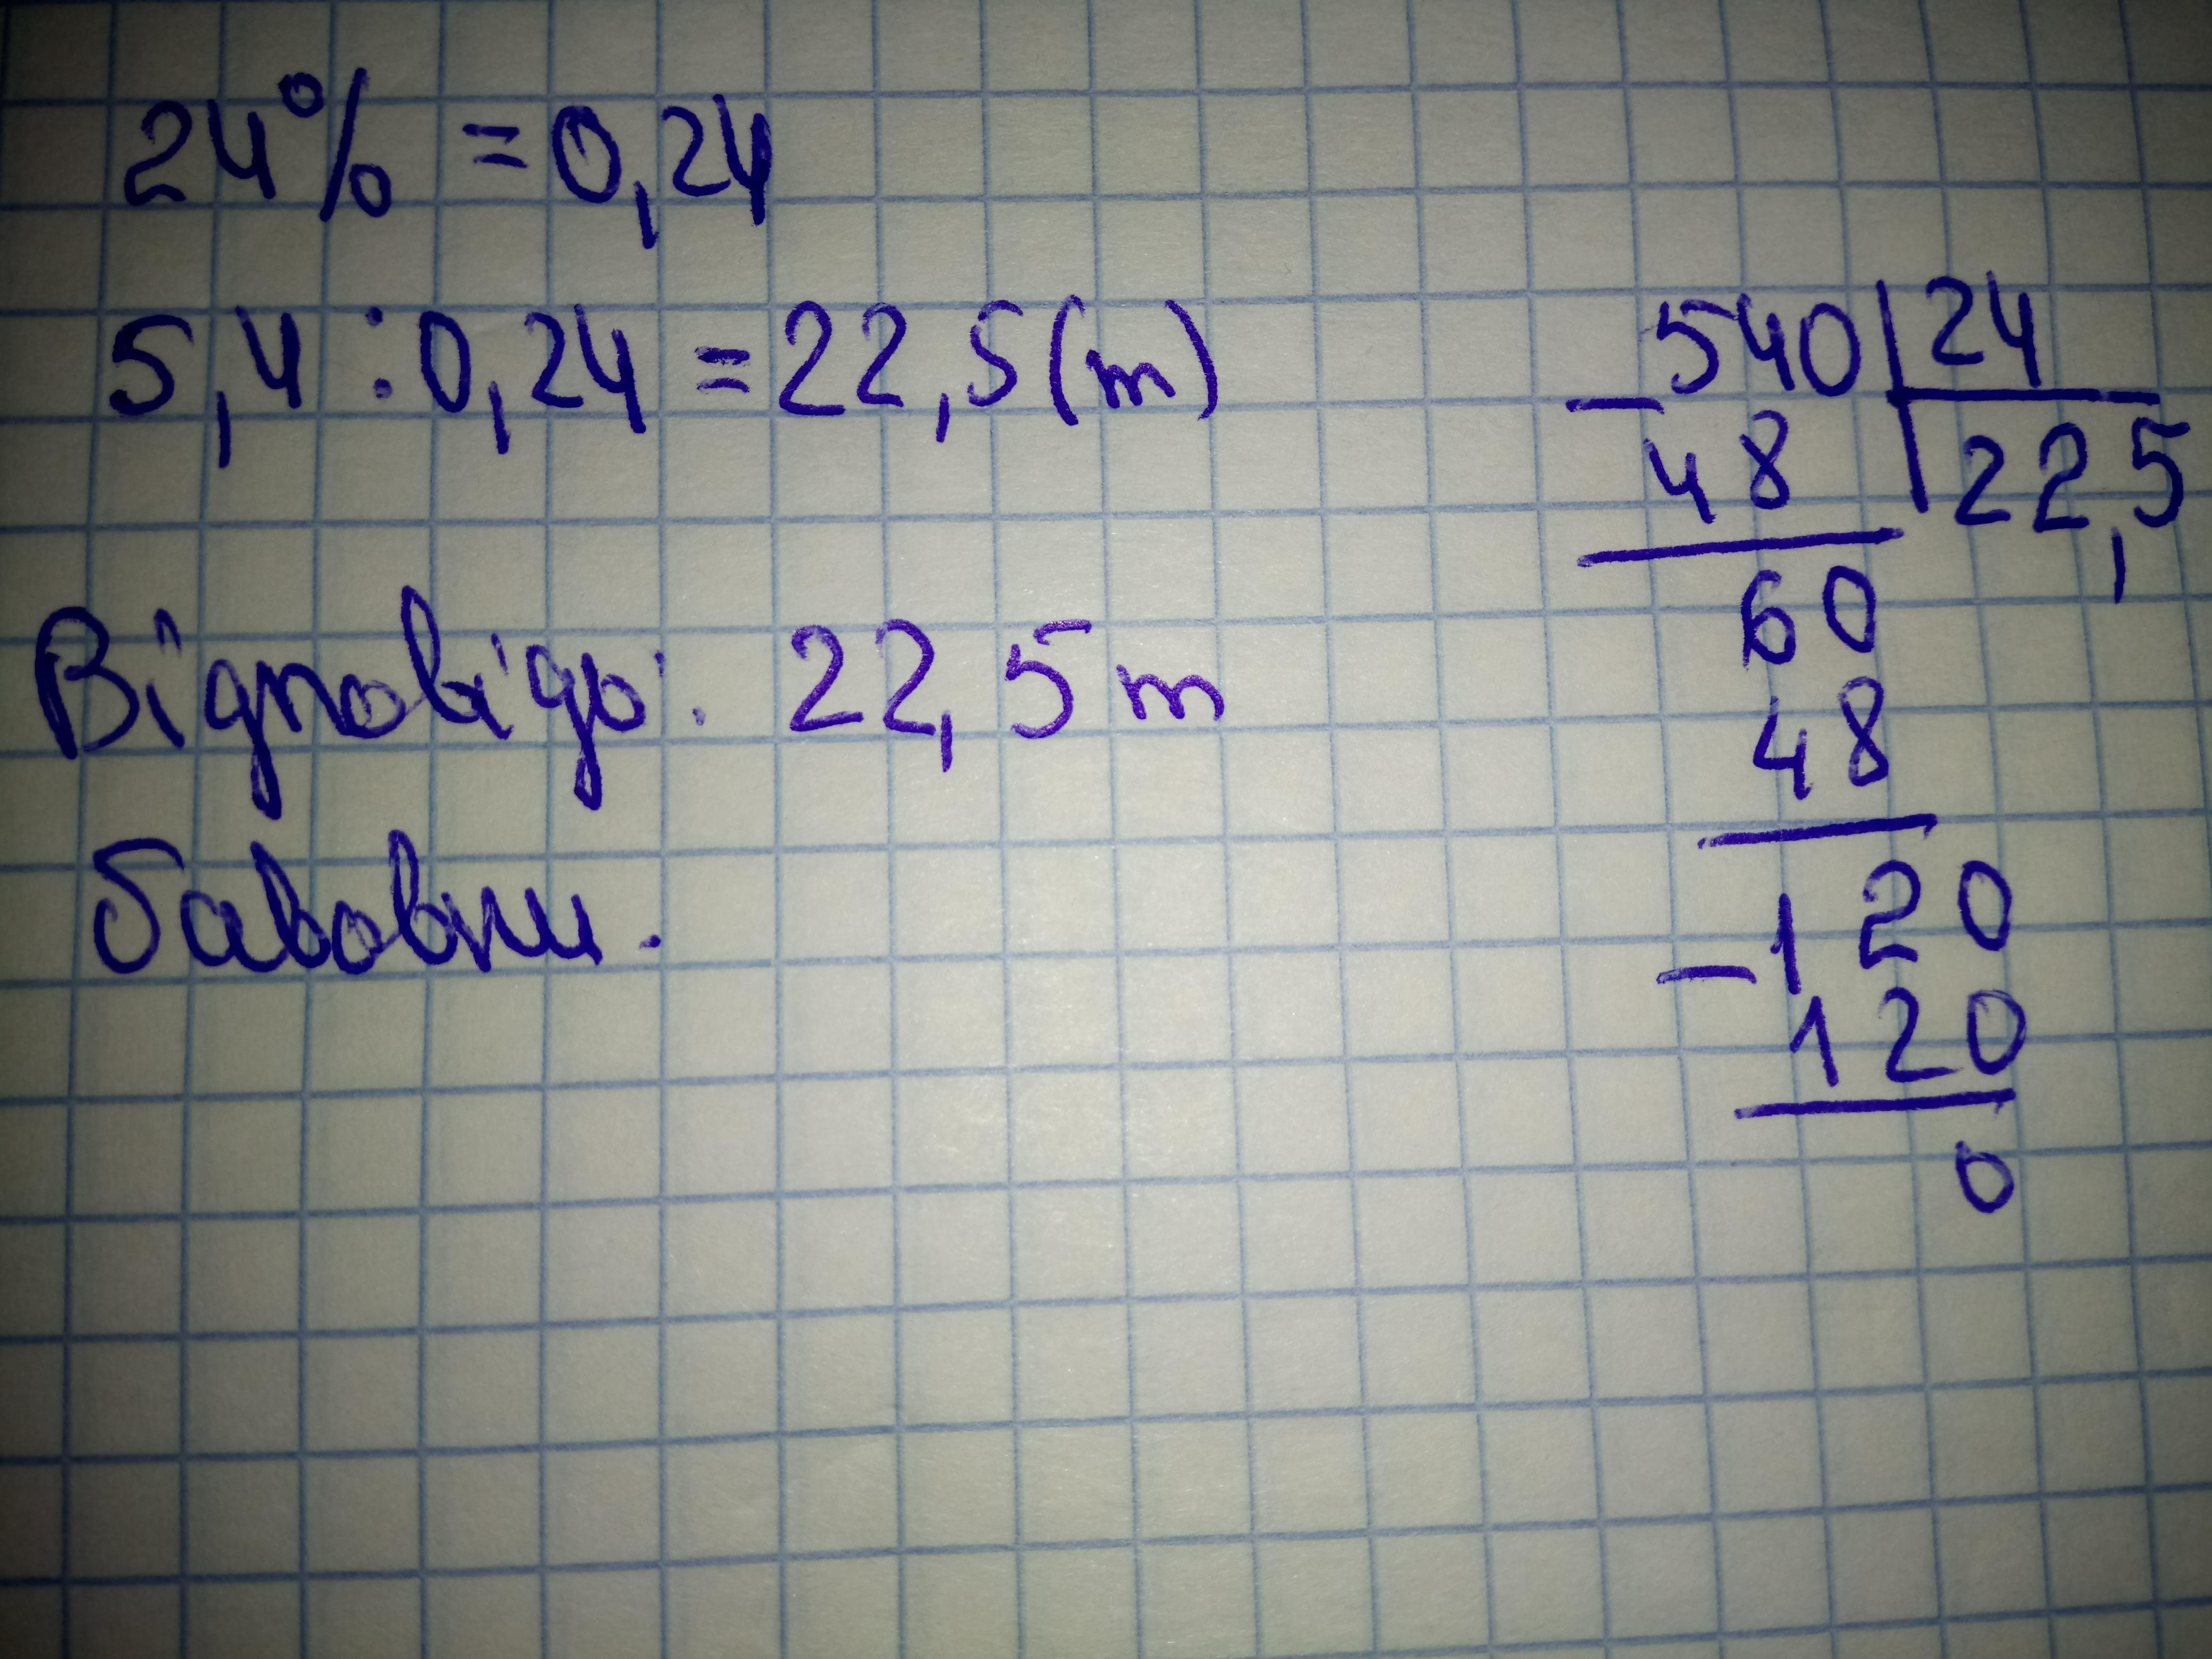 24% = 0,24
5,4 : 0,24 = 22,5 (т)
Відповідь: 22,5 т
бавовни.
540 24
48 22,5
60
48
120
120
0